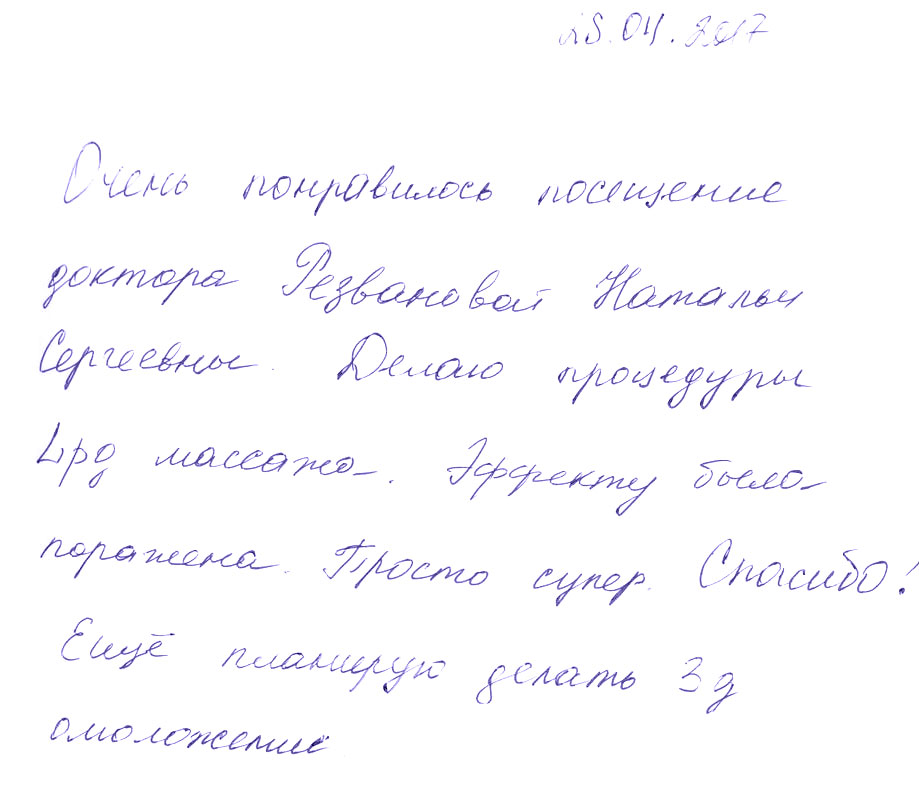 25.04.2017
Очень понравилось посещение
доктора Резвановой Натальи
Сергеевны. Делаю процедуры
Lpg массажа. Эффекту была
поражена. Просто супер. Спасибо!
Ещё планирую делать 3д
омоложение